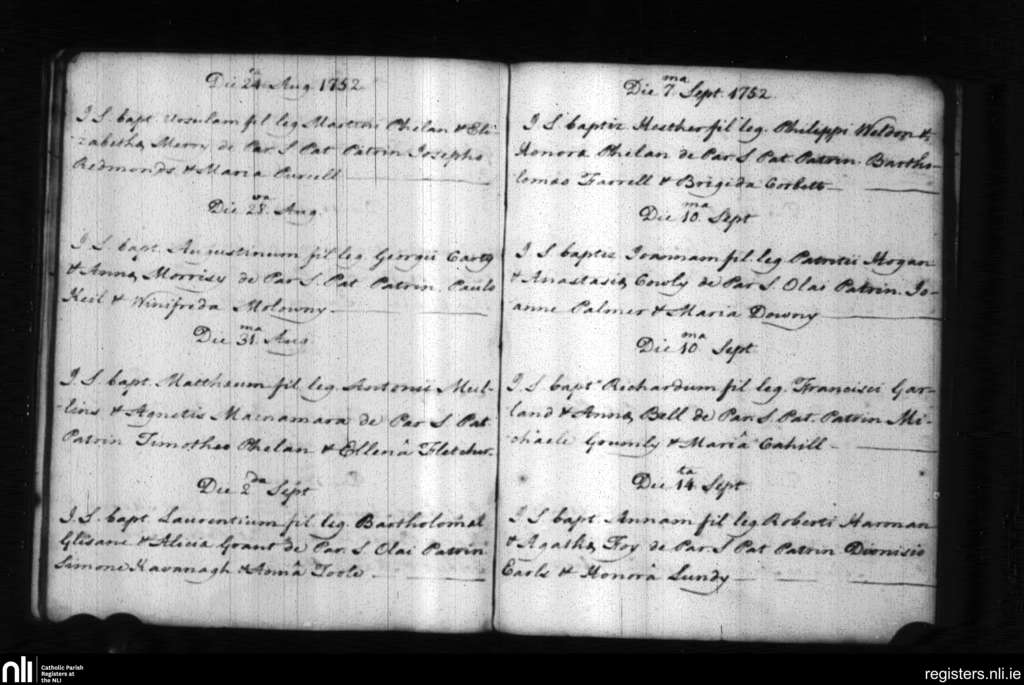 Die 24ta Aug. 1752
I S. bapt. Ursulam fil leg Martini Phelan & Eli-
zabethæ Merry de Par S Pat Patrin Josepho
Redmonds & Maria Purcell
Die 28va Aug.
I S. bapt. Augustinum fil leg Georgii Carty
& Annæ Morrisey de Par S. Pat Patrin. Paulo
Keil & Winifreda Molowny
Die 31ma Aug
I S. bapt. Matthæum fil leg Antonii Mul-
lins & Agnetis Macnamara de Par S Pat
Patrin Timotheo Phelan & Ellenâ Fletcher
Die 2da Sept
I S. bapt Laurentium fil leg. Bartholomæi
Glisane & Alicia Grant de Par. S Olai Patrin
Simone Kavanagh & Annâ Toole
Die 7ma Sept 1752
I S baptiz Hesther fil leg. Philippi Weldon &
Honora Phelan de Par S Pat Patrin. Bartho-
lomæo Farrell & Brigida Corbett
Die 10ma Sept
I S baptiz Joannam fil leg Patritii Hogan
& Anastasiæ Cowly de Par S. Olai Patrin. Jo-
anne Palmer & Maria Downy
Die 10ma Sept
I S bapt Richardum fil leg. Francisci Gar-
land & Annæ Bell de Par. S. Pat. Patrin Mi-
chaele Gounly & Mariâ Cahill
Die 14ta Sept
I S bapt Annam fil leg Roberti Haronan
& Agathæ Foy de Par S Pat Patrin Dionisio
Earls & Honorâ Lundy
nli Catholic Parish
Registers at
the NLI
registers.nli.ie